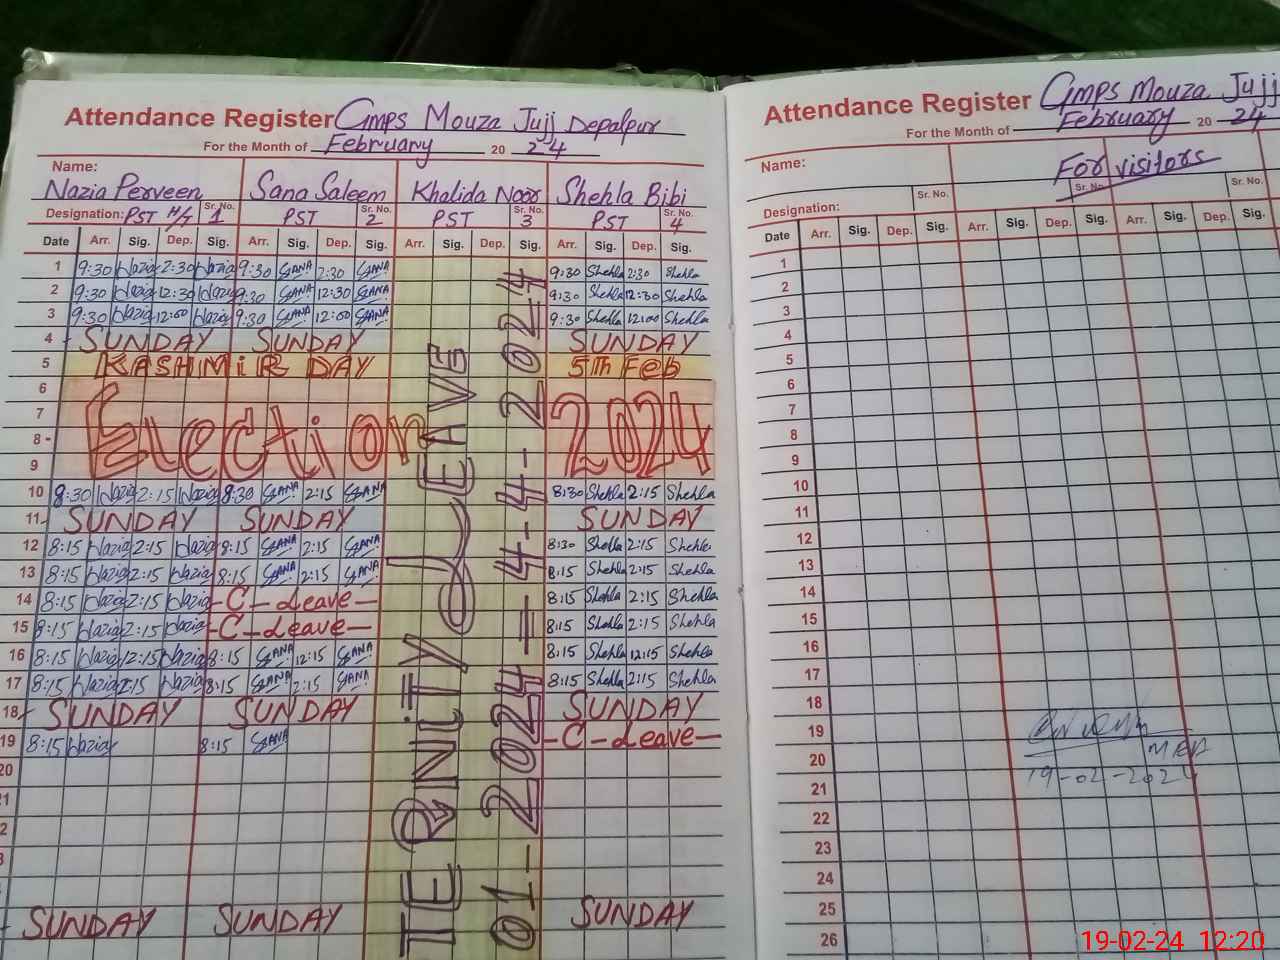 Attendance Register Gmps Mouza Jujj Depalpur
For the Month of February 20 24
Name:
Nazia Perveen Sana Saleem Khalida Noor Shehla Bibi
Designation: PST H/T Sr. No. 1 PST Sr. No. 2 PST Sr. No. 3 PST Sr. No. 4
Date Arr. Sig. Dep. Sig. Arr. Sig. Dep. Sig. Arr. Sig. Dep. Sig. Arr. Sig. Dep. Sig.
1 9:30 Nazia 2:30 Nazia 9:30 SANA 2:30 SANA 9:30 Shehla 2:30 Shehla
2 9:30 Nazia 12:30 Nazia 9:30 SANA 12:30 SANA 9:30 Shehla 12:30 Shehla
3 9:30 Nazia 12:00 Nazia 9:30 SANA 12:00 SANA 9:30 Shehla 12:00 Shehla
4 SUNDAY SUNDAY SUNDAY
5 KASHMiR DAY 5Th Feb
6
7 Election 2024
8
9
10 8:30 Nazia 2:15 Nazia 8:30 SANA 2:15 SANA 8:30 Shehla 2:15 Shehla
11 SUNDAY SUNDAY SUNDAY
12 8:15 Nazia 2:15 Nazia 8:15 SANA 2:15 SANA 8:30 Shehla 2:15 Shehla
13 8:15 Nazia 2:15 Nazia 8:15 SANA 2:15 SANA 8:15 Shehla 2:15 Shehla
14 8:15 Nazia 2:15 Nazia -C-Leave- 8:15 Shehla 2:15 Shehla
15 8:15 Nazia 2:15 Nazia -C-Leave- 8:15 Shehla 2:15 Shehla
16 8:15 Nazia 12:15 Nazia 8:15 SANA 12:15 SANA 8:15 Shehla 12:15 Shehla
17 8:15 Nazia 2:15 Nazia 8:15 SANA 2:15 SANA 8:15 Shehla 2:15 Shehla
18 SUNDAY SUNDAY SUNDAY
19 8:15 Nazia 8:15 SANA -C-Leave-
20
SUNDAY SUNDAY SUNDAY
TERNiTY LEAVE
01-2024=4-4-2024
Attendance Register Gmps Mouza Jujj
For the Month of February 20 24
Name: For visitors
Designation: Sr. No. Sr. No. Sr. No.
Date Arr. Sig. Dep. Sig. Arr. Sig. Dep. Sig. Arr. Sig. Dep.
1
2
3
4
5
6
7
8
9
10
11
12
13
14
15
16
17
18
19
20
21
22
23
24
25
26
19-02-2024
19-02-24 12:20